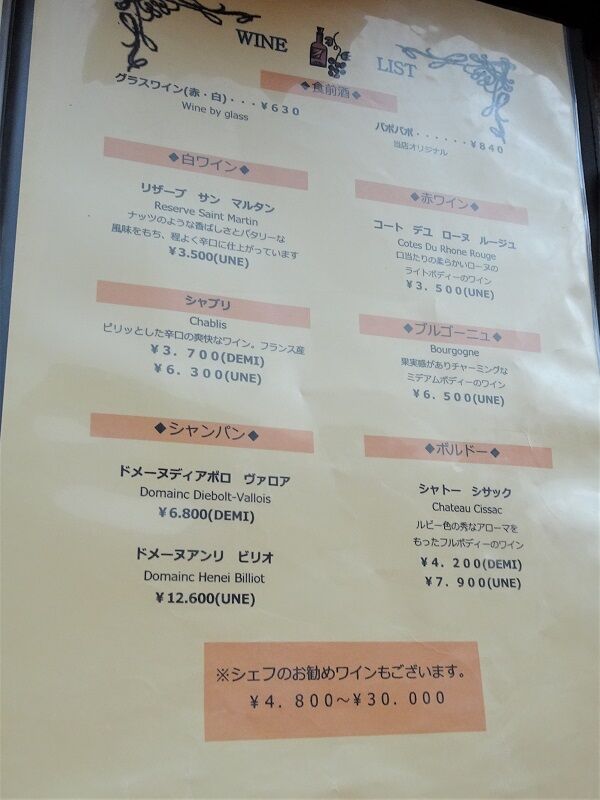 WINE LIST
◆食前酒◆
グラスワイン(赤・白)・・・¥630
Wine by glass
パポパポ・・・・・・¥840
当店オリジナル
◆白ワイン◆
リザーブ サン マルタン
Reserve Saint Martin
ナッツのような香ばしさとバタリーな
風味をもち、程よく辛口に仕上がっています
¥3.500(UNE)
シャブリ
Chablis
ピリッとした辛口の爽快なワイン。フランス産
¥3.700(DEMI)
¥6.300(UNE)
◆シャンパン◆
ドメーヌディアボロ ヴァロア
Domainc Diebolt-Vallois
¥6.800(DEMI)
ドメーヌアンリ ビリオ
Domainc Henei Billiot
¥12.600(UNE)
◆赤ワイン◆
コート デュ ローヌ ルージュ
Cotes Du Rhone Rouge
口当たりの柔らかいローヌの
ライトボディーのワイン
¥3.500(UNE)
◆ブルゴーニュ◆
Bourgogne
果実感がありチャーミングな
ミデアムボディーのワイン
¥6.500(UNE)
◆ボルドー◆
シャトー シサック
Chateau Cissac
ルビー色の秀なアローマを
もったフルボディーのワイン
¥4.200(DEMI)
¥7.900(UNE)
※シェフのお勧めワインもございます。
¥4.800～¥30.000